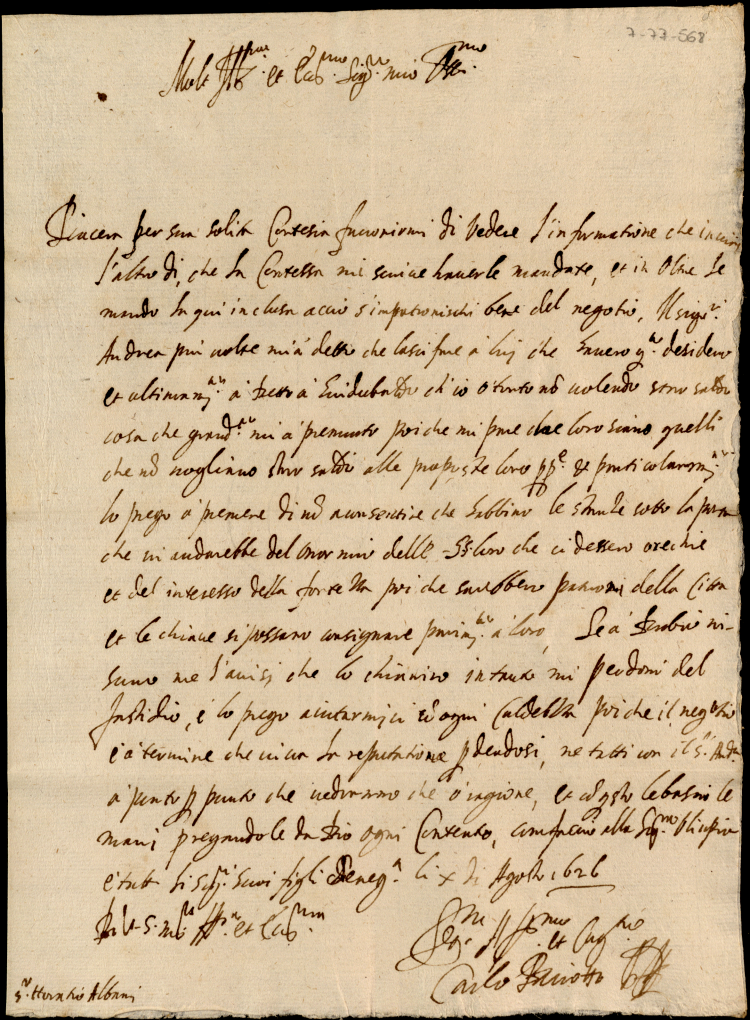 7-77-568
Molt Ill.re et Ecc.mo Sig.r mio
Piacera per sua solita Cortesia favorirmi di vedere l'informatione che inviai
l'altro di, che la Contessa mi scrive haverle mandate, et in oltre le
mando la qui inclusa accio s'impatronischi bene del negotio, Il sig.r
Andrea più volte mi à detto che lasci fare à lui che invero q.to desidero
et ultimam.te à detto à Guidubaldo ch'io ò torto nõ volendo star saldo
cosa che grand.te mi à premuto poiche mi pare che loro siano quelli
che nõ vogliano star saldi alle proposte loro et particolarm.te
lo prego à premere di nõ aconsentire che habbino le stanze sotto la
che vi andarebbe del delle SS. loro che ci dessero orechie
et del interesse della fortezza poi che sarebbero patroni della Citta
et le chiave si possano consignare à loro, Se à
me l'avisi che lo chiariro intanto mi perdoni del
fastidio, e lo prego aiutarmici cõ ogni Caldezza poiche il negotio
è à termine che vi va la reputatione, ne tratti con il S. And.a
à punto p punto che vedranno che ò ragione, et cõ q.sto le bascio le
mani pregandole da Dio ogni Contento, alla Sig.ra Olimpia
e tutti li Suoi figli li x di Agosto 1626
Di V.S. m.to Ill.re et Ecc.ma
et
Carlo
S.r Horatio Albani